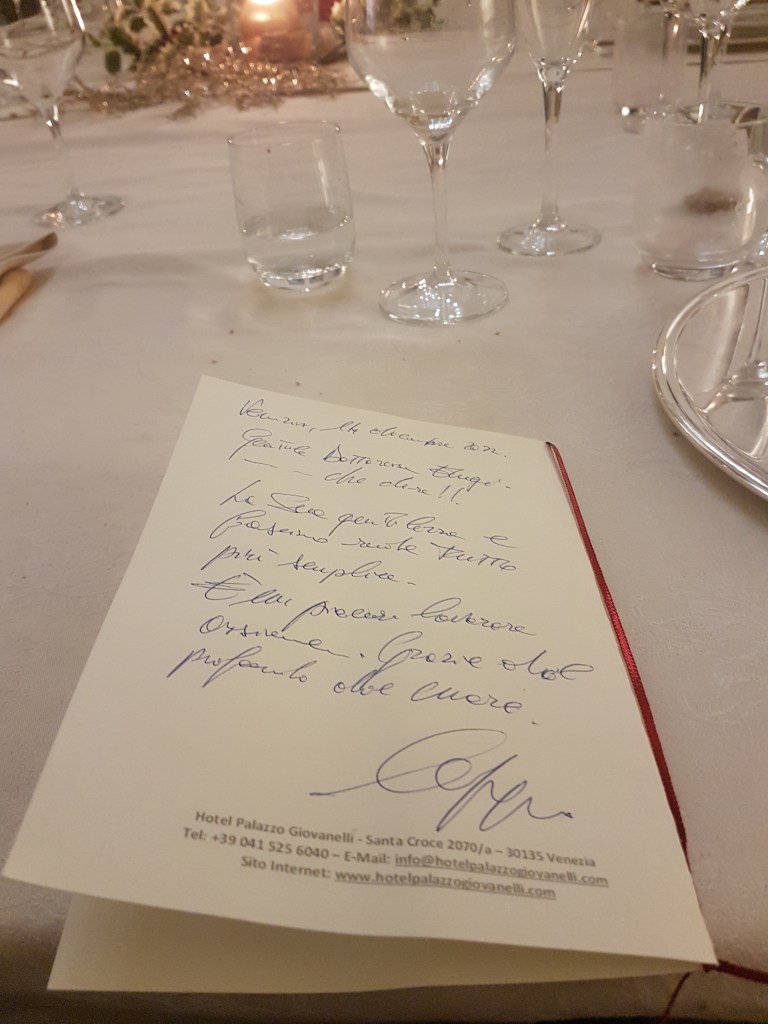 Venezia, 14 dicembre 2022.
Gentile Dottoressa
– – che dire!!
La Sua gentilezza e
fascino rende tutto
più semplice.
È un piacere lavorare
assieme. Grazie dal
profondo del cuore.
Hotel Palazzo Giovanelli - Santa Croce 2070/a – 30135 Venezia
Tel: +39 041 525 6040 – E-Mail: info@hotelpalazzogiovanelli.com
Sito Internet: www.hotelpalazzogiovanelli.com